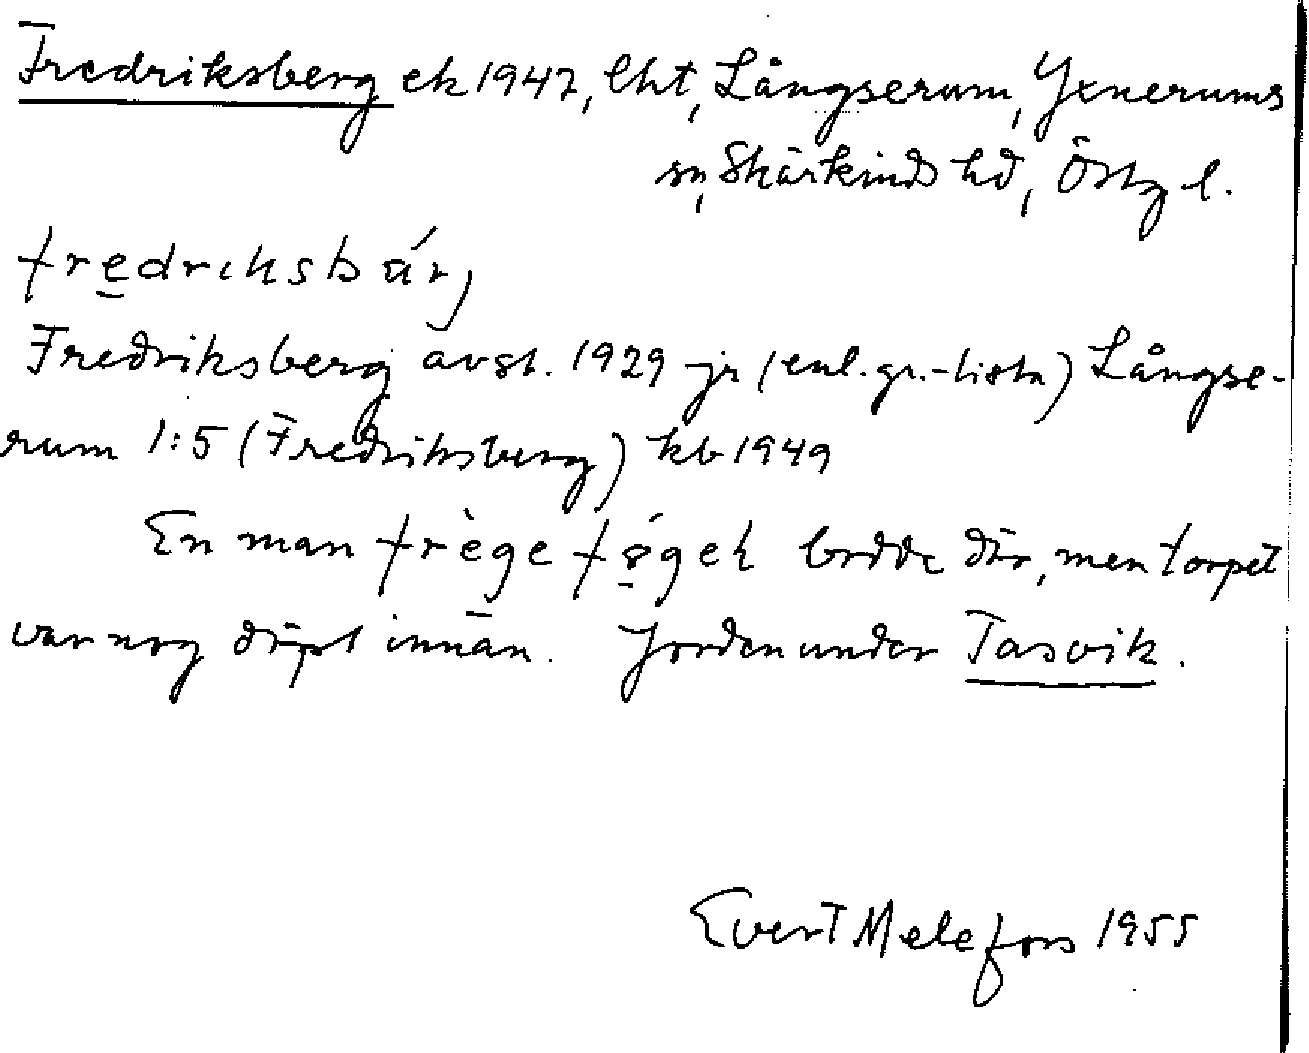 Fredriksberg ek 1947, lht, Långserum, Yxnerums
sn, Skärkinds hd, Östg l.
fredriksbár,
Fredriksberg avst. 1929 jr (enl. gr.-lista) Långse-
rum 1:5 (Fredriksberg) kb 1949
En man frège fǿgel bodde där, men torpet
var nog döpt innan. Jorden under Tasvik.
Evert Melefors 1955